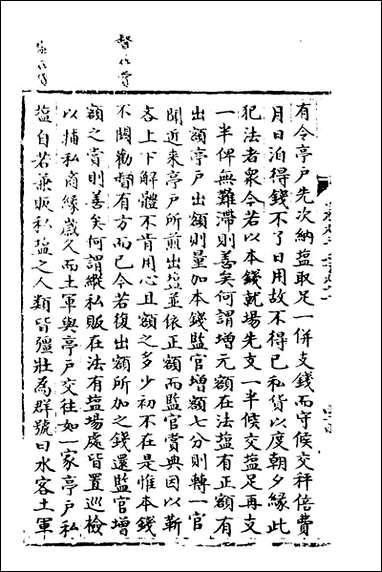 有令亭户先次納塩取足一併支錢而守候交秤倍費
月日洎得錢不了日用故不得已私貨以度朝夕縁此
犯法者衆今若以本錢就場先支一半候交塩足再支
一半俾無難滞則善矣何謂增元額在法塩有正額有
出額亭户出額則量加本錢監官增額七分則轉一官
聞近来亭户所煎出塩並依正額而監官賞典因以靳
吝上下解體不肯用心且額之多少初不在是惟本錢
不闕勸督有方而已今若復出額所加之錢還監官增
額之賞則善矣何謂縱私販在法有塩場處皆置巡檢
以捕私商縁歲久而土軍與亭户交往如一家亭户私
塩自若兼販私塩之人類皆彊壯為群號曰水客土軍